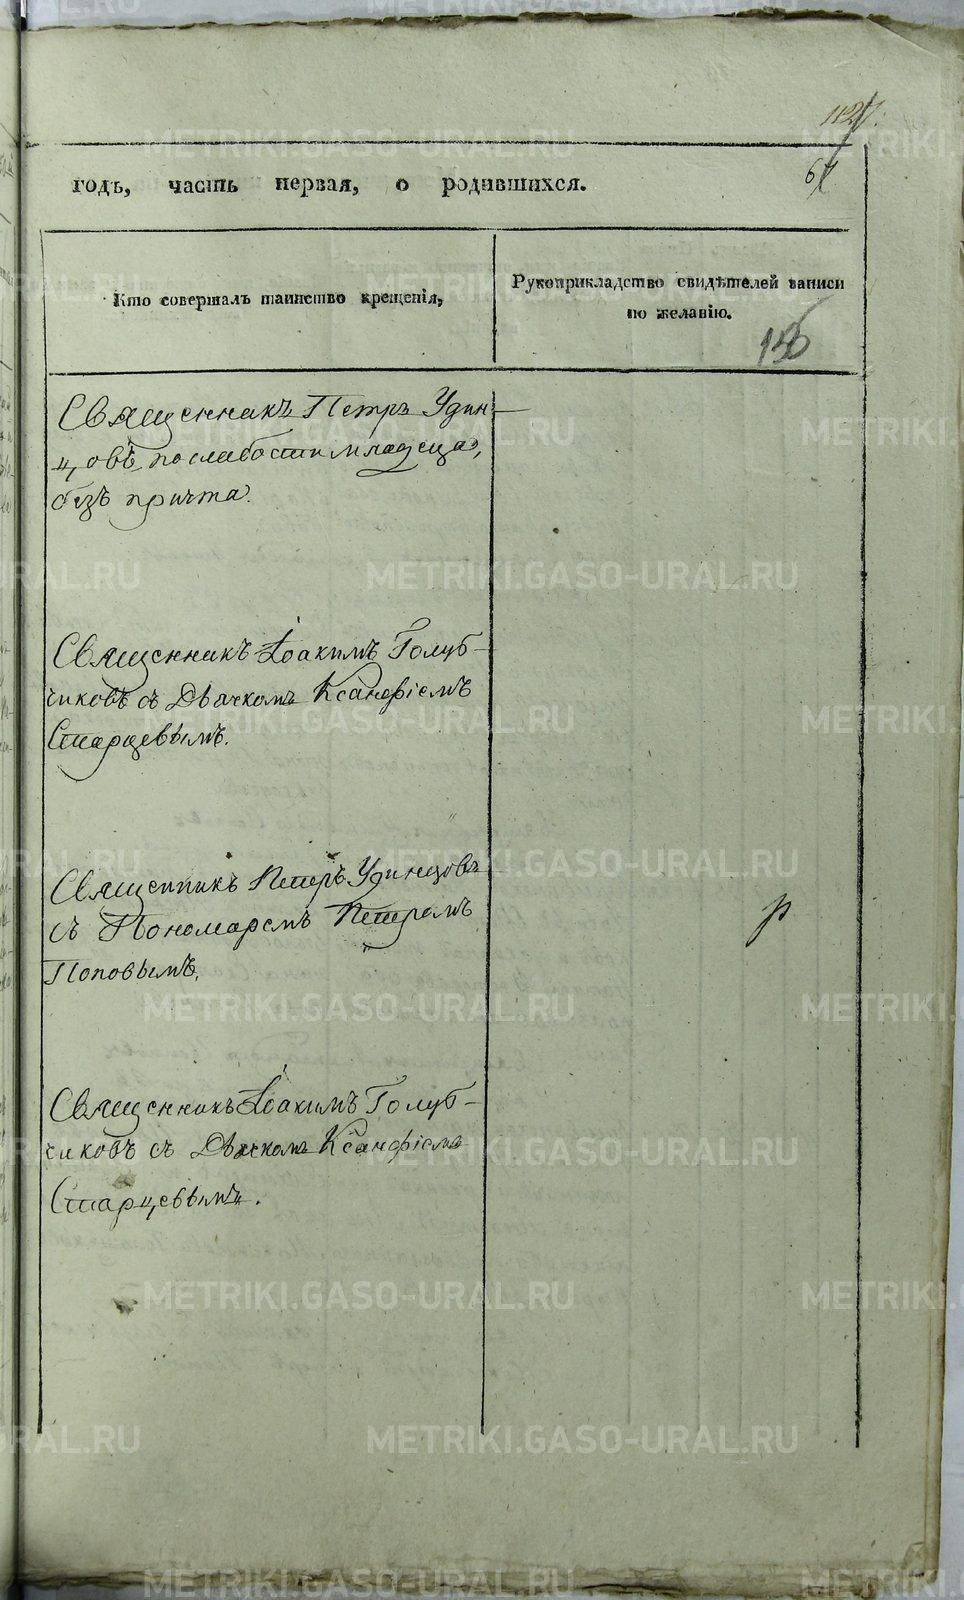 годъ, часть первая, о родившихся.
Кто совершалъ таинство крещенія,
Рукоприкладство свидѣтелей записи
по желанію.
156
Священникъ Петръ Удин-
цовъ, по слабости младенца,
безъ причта.
Священникъ Іоакимъ Голуб-
чиковъ съ Дьячкомъ Ксанфіемъ
Старцевымъ.
Священникъ Петръ Удинцовъ
съ Пономаремъ Петромъ
Поповымъ.
Священникъ Іоакимъ Голуб-
чиковъ съ Дьячкомъ Ксанфіемъ
Старцевымъ.
METRIKI.GASO-URAL.RU